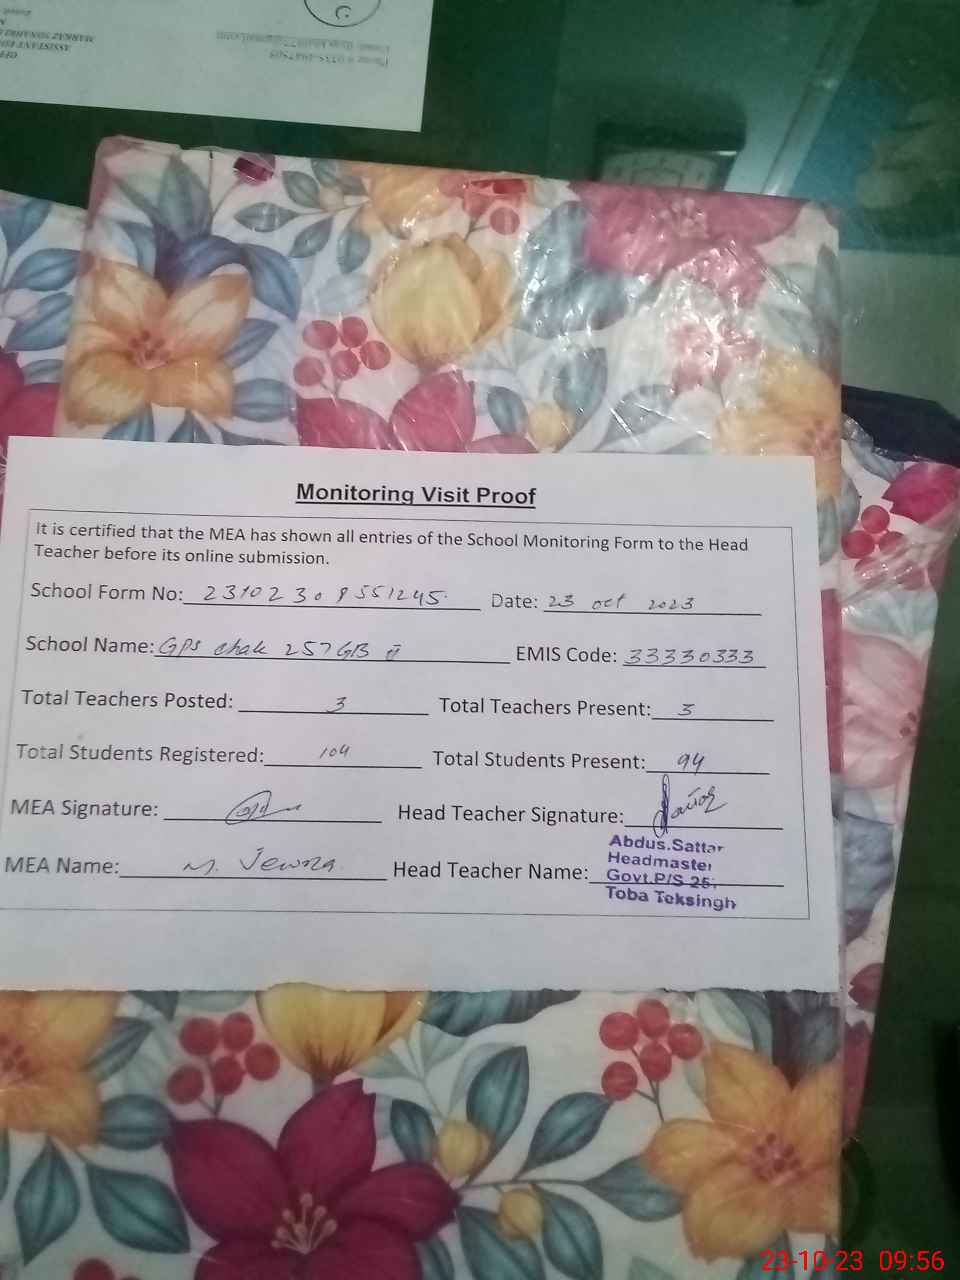 Monitoring Visit Proof
It is certified that the MEA has shown all entries of the School Monitoring Form to the Head
Teacher before its online submission.
School Form No: 231023098551245 Date: 23 oct 2023
School Name: GPS chak 257 GB EMIS Code: 33330333
Total Teachers Posted: 3 Total Teachers Present: 3
Total Students Registered: 104 Total Students Present: 94
MEA Signature: Head Teacher Signature:
MEA Name: M. Head Teacher Name:
Abdus.Sattar
Headmaster
Govt.P/S 257
Toba Teksingh
23-10-23 09:56